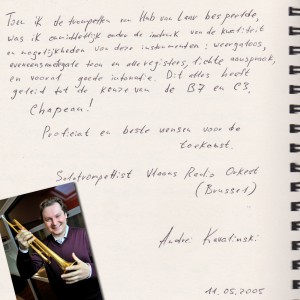 Toen ik de trompetten van Hub van Laar bespeelde,
was ik onmiddellijk onder de indruk van de kwaliteit
en mogelijkheden van deze instrumenten: weergaloos,
evenwichtige toon in alle registers, lichte aanspraak,
en vooral goede intonatie. Dit alles heeft
geleid tot de keuze van de B7 en C3.
Chapeau!
Proficiat en beste wensen voor de
toekomst.
Solotrompettist Vlaams Radio Orkest
(Brussel)
Andrei Kavalinski
11.05.2005